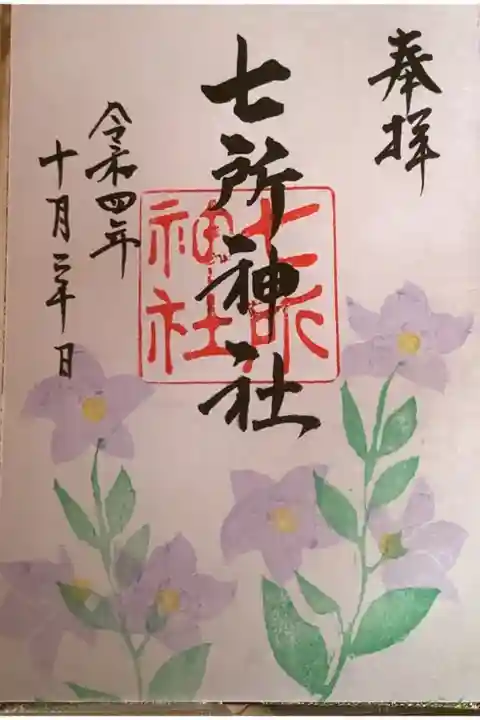 奉拝
七所神社
七所
神社
令和四年
十月三十日